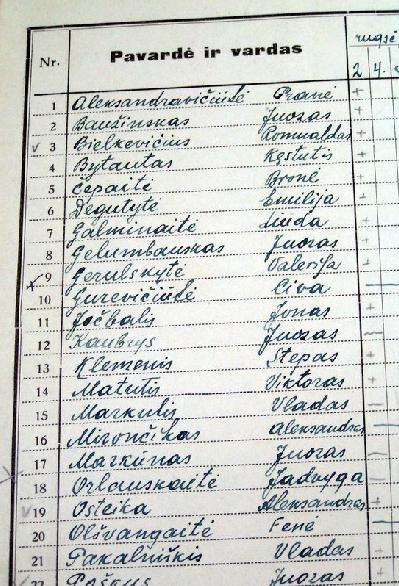 rugsė
Nr. Pavardė ir vardas 2 4.
1 Aleksandravičiūtė Pranė +
2 Baužinskas Juozas +
3 Bielkevičius Romualdas +
4 Bytautas Kęstutis +
5 Čepaitė Bronė +
6 Degutytė Emilija +
7 Galminaitė Liuda +
8 Gelumbauskas Juozas +
9 Gerulskytė Valerija +
10 Gurevičiūtė Civa —
11 Jočbalis Jonas +
12 Kaubrys Juozas —
13 Klemenis Stepas +
14 Matutis Viktoras +
15 Markulis Vladas —
16 Mirončikas Aleksandras
17 Markūnas Juozas —
18 Orlauskaitė Jadvyga
19 Osteika Aleksandras
20 Olšvangaitė Fenė —
21 Pakalniškis Vladas
22 Paškus Juozas +